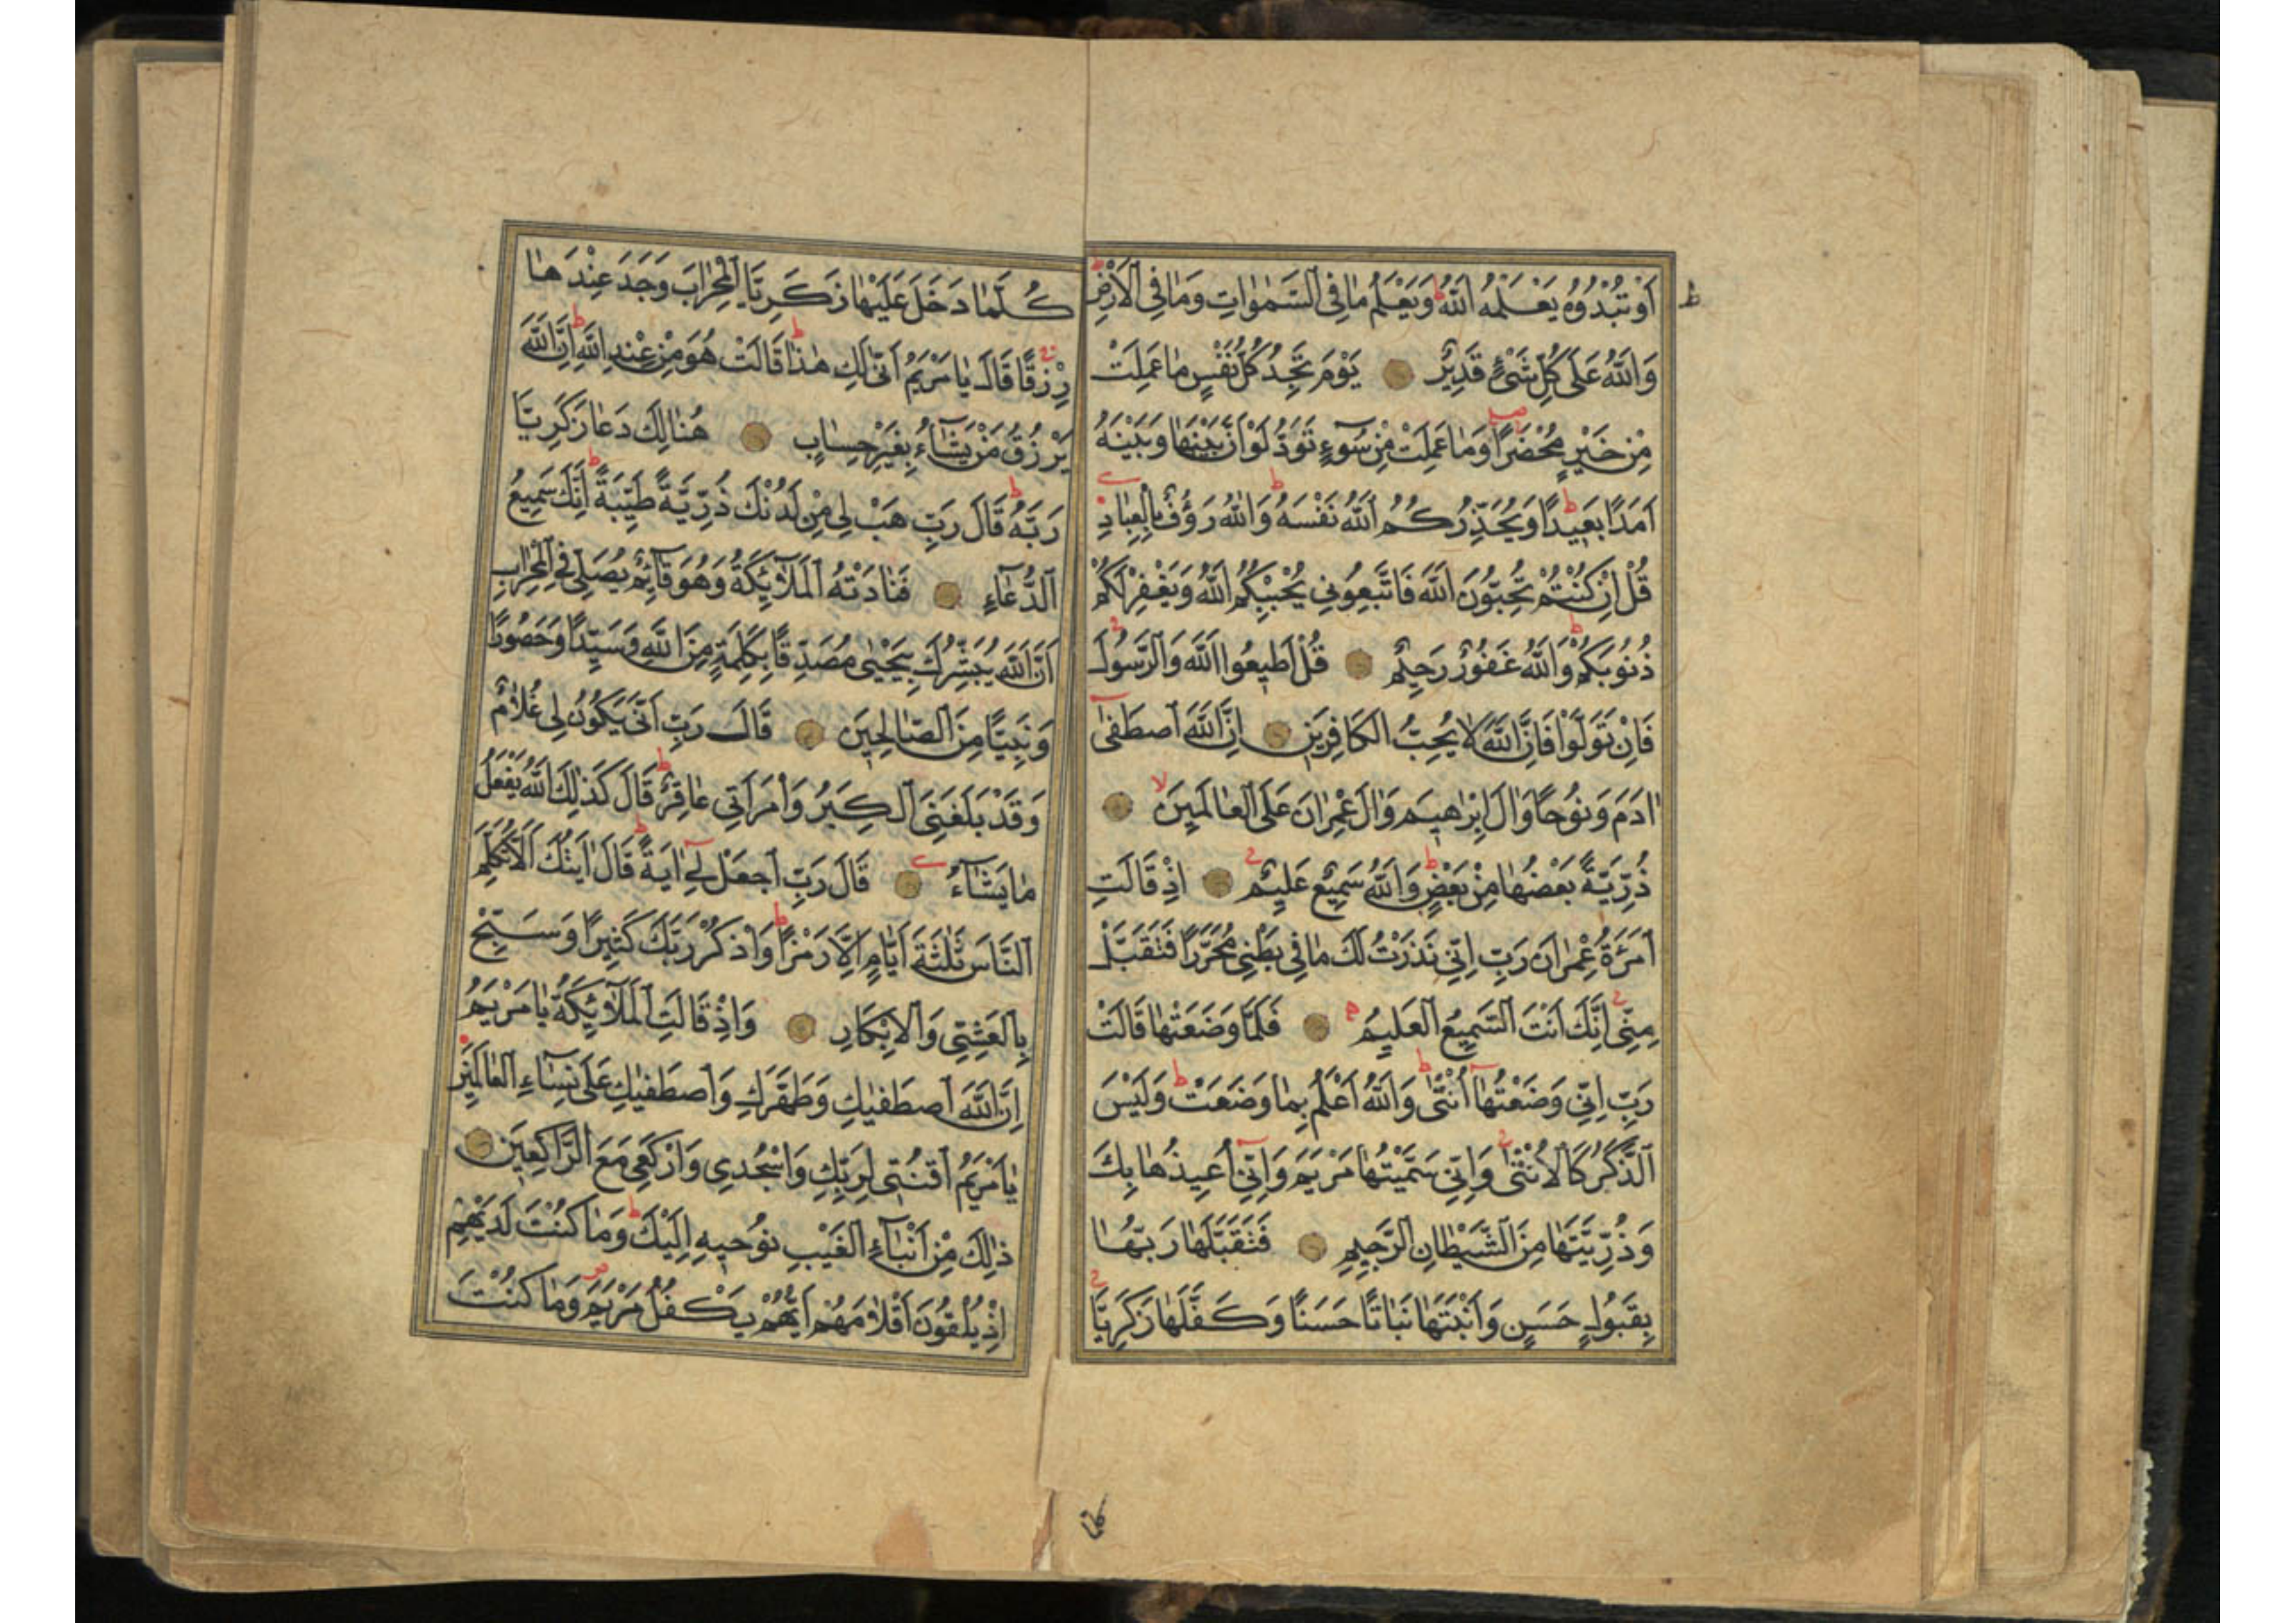 اَوْ تُبْدُوهُ يَعْلَمْهُ اللّٰهُ وَيَعْلَمُ مٰا فِى السَّمٰوٰاتِ وَمٰا فِى الْاَرْضِ
وَاللّٰهُ عَلٰى كُلِّ شَىْءٍ قَدِيرٌ يَوْمَ تَجِدُ كُلُّ نَفْسٍ مٰا عَمِلَتْ
مِنْ خَيْرٍ مُحْضَرًا وَمٰا عَمِلَتْ مِنْ سُوٓءٍ تَوَدُّ لَوْ اَنَّ بَيْنَهٰا وَبَيْنَهُ
اَمَدًا بَعِيدًا وَيُحَذِّرُكُمُ اللّٰهُ نَفْسَهُ وَاللّٰهُ رَؤُفٌ بِالْعِبٰادِ
قُلْ اِنْ كُنْتُمْ تُحِبُّونَ اللّٰهَ فَاتَّبِعُونِى يُحْبِبْكُمُ اللّٰهُ وَيَغْفِرْ لَكُمْ
ذُنُوبَكُمْ وَاللّٰهُ غَفُورٌ رَحِيمٌ قُلْ اَطِيعُوا اللّٰهَ وَالرَّسُولَ
فَاِنْ تَوَلَّوْا فَاِنَّ اللّٰهَ لٰا يُحِبُّ الْكَافِرِينَ اِنَّ اللّٰهَ اصْطَفٰىٓ
اٰدَمَ وَنُوحًا وَاٰلَ اِبْرٰاهِيمَ وَاٰلَ عِمْرٰانَ عَلَى الْعٰالَمِينَ
ذُرِّيَّةً بَعْضُهٰا مِنْ بَعْضٍ وَاللّٰهُ سَمِيعٌ عَلِيمٌ اِذْ قَالَتِ
امْرَئَةُ عِمْرٰانَ رَبِّ اِنِّى نَذَرْتُ لَكَ مٰا فِى بَطْنِى مُحَرَّرًا فَتَقَبَّلْ
مِنِّى اِنَّكَ اَنْتَ السَّمِيعُ الْعَلِيمُ فَلَمَّا وَضَعَتْهٰا قَالَتْ
رَبِّ اِنِّى وَضَعْتُهٰآ اُنْثٰى وَاللّٰهُ اَعْلَمُ بِمٰا وَضَعَتْ وَلَيْسَ
الذَّكَرُ كَالْاُنْثٰى وَاِنِّى سَمَّيْتُهٰا مَرْيَمَ وَاِنِّىٓ اُعِيذُهٰا بِكَ
وَذُرِّيَّتَهٰا مِنَ الشَّيْطٰانِ الرَّجِيمِ فَتَقَبَّلَهٰا رَبُّهٰا
بِقَبُولٍ حَسَنٍ وَاَنْبَتَهٰا نَبٰاتًا حَسَنًا وَكَفَّلَهٰا زَكَرِيَّا
كُلَّمٰا دَخَلَ عَلَيْهٰا زَكَرِيَّا الْمِحْرٰابَ وَجَدَ عِنْدَهٰا
رِزْقًا قَالَ يٰا مَرْيَمُ اَنّٰى لَكِ هٰذٰا قَالَتْ هُوَ مِنْ عِنْدِ اللّٰهِ اِنَّ اللّٰهَ
يَرْزُقُ مَنْ يَشٰٓاءُ بِغَيْرِ حِسٰابٍ هُنٰالِكَ دَعٰا زَكَرِيَّا
رَبَّهُ قَالَ رَبِّ هَبْ لِى مِنْ لَدُنْكَ ذُرِّيَّةً طَيِّبَةً اِنَّكَ سَمِيعُ
الدُّعٰٓاءِ فَنٰادَتْهُ الْمَلٰٓائِكَةُ وَهُوَ قَٓائِمٌ يُصَلِّى فِى الْمِحْرٰابِ
اَنَّ اللّٰهَ يُبَشِّرُكَ بِيَحْيٰى مُصَدِّقًا بِكَلِمَةٍ مِنَ اللّٰهِ وَسَيِّدًا وَحَصُورًا
وَنَبِيًّا مِنَ الصّٰالِحِينَ قَالَ رَبِّ اَنّٰى يَكُونُ لِى غُلٰامٌ
وَقَدْ بَلَغَنِىَ الْكِبَرُ وَامْرَاَتِى عٰاقِرٌ قَالَ كَذٰلِكَ اللّٰهُ يَفْعَلُ
مٰا يَشٰٓاءُ قَالَ رَبِّ اجْعَلْ لِىٓ اٰيَةً قَالَ اٰيَتُكَ اَلَّا تُكَلِّمَ
النَّاسَ ثَلٰثَةَ اَيَّامٍ اِلَّا رَمْزًا وَاذْكُرْ رَبَّكَ كَثِيرًا وَسَبِّحْ
بِالْعَشِىِّ وَالْاِبْكَارِ وَاِذْ قَالَتِ الْمَلٰٓائِكَةُ يٰا مَرْيَمُ
اِنَّ اللّٰهَ اصْطَفٰيكِ وَطَهَّرَكِ وَاصْطَفٰيكِ عَلٰى نِسٰٓاءِ الْعٰالَمِينَ
يٰا مَرْيَمُ اقْنُتِى لِرَبِّكِ وَاسْجُدِى وَارْكَعِى مَعَ الرَّاكِعِينَ
ذٰلِكَ مِنْ اَنْبٰٓاءِ الْغَيْبِ نُوحِيهِ اِلَيْكَ وَمٰا كُنْتَ لَدَيْهِمْ
اِذْ يُلْقُونَ اَقْلٰامَهُمْ اَيُّهُمْ يَكْفُلُ مَرْيَمَ وَمٰا كُنْتَ